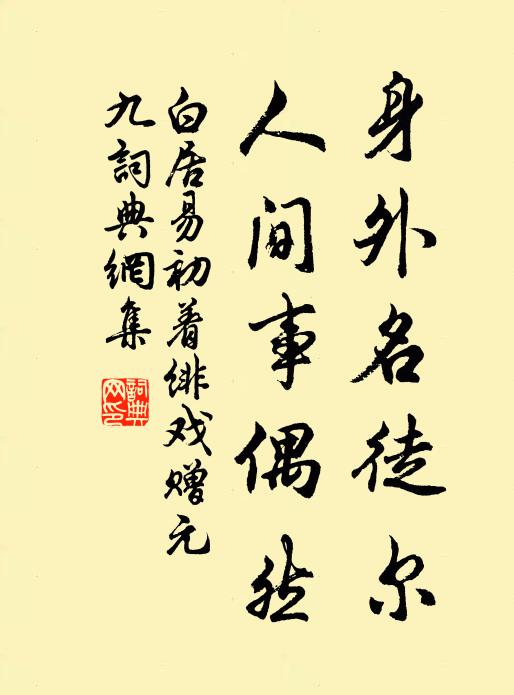 身外名徒尔
人间事偶然
白居易初着绯戏赠元
九詞典網集
詞典
网印